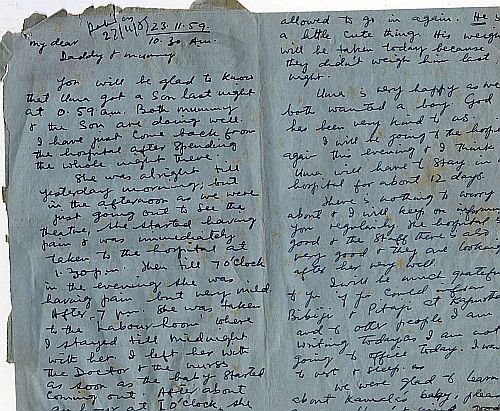 23.11.59
10.30 Am.
My dear
Daddy & mummy
You will be glad to know
that Uma got a son last night
at 0.59 am. Both mummy
& the son are doing well.
I have just come back from
the hospital after spending
the whole night there.
She was alright till
yesterday morning, but
in the afternoon as we were
just going out to see the
theatre, she started having
pain & was immediately
taken to the hospital at
1.30 p.m. Then till 7 O'Clock
in the evening she was
having pain but very mild.
After 7 pm. She was taken
to the labour room where
I stayed till midnight
with her. I left her with
the Doctor & the nurses
as soon as the baby started
coming out. After about
at 1 O'Clock, she
allowed to go in again. He
a little cute thing. His weight
will be taken today because
they didn't weigh him last
night.
Uma is very happy as we
both wanted a boy. God
has been very kind to us.
I will be going to the hospital
again this evening & I think
Uma will have to stay in
hospital for about 12 days.
There's nothing to worry
about & I will keep on informing
you regularly. The hospital is
good & the staff there is also
very good & they are looking
after her very well.
I will be much grateful
to you if you could inform
Bibiji & Pitaji at Kapurthala
and to other people I am
writing today as I am not
going to office today. I want
to rest & sleep.
We were glad to learn
about Kamala's baby, please